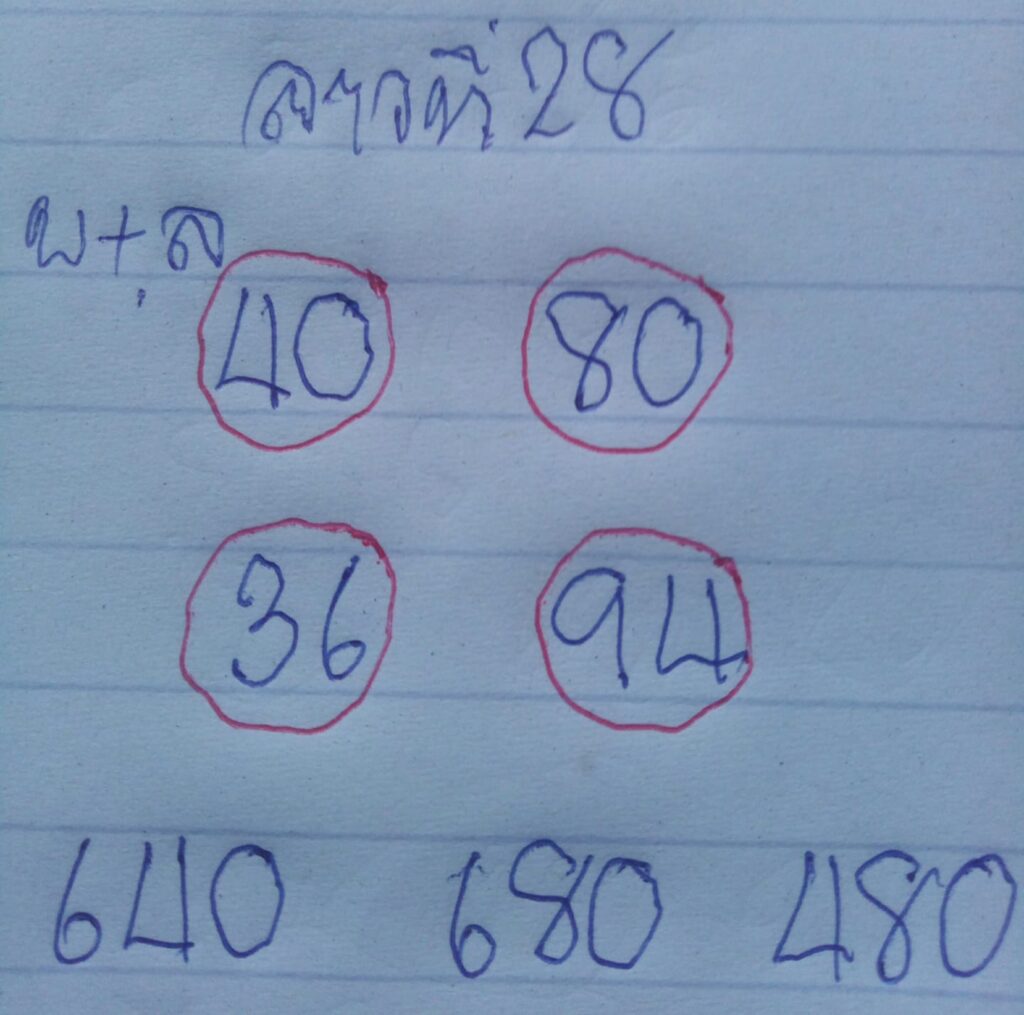 ลาวที่ 28
บ+ล
40 80
36 94
640 680 480